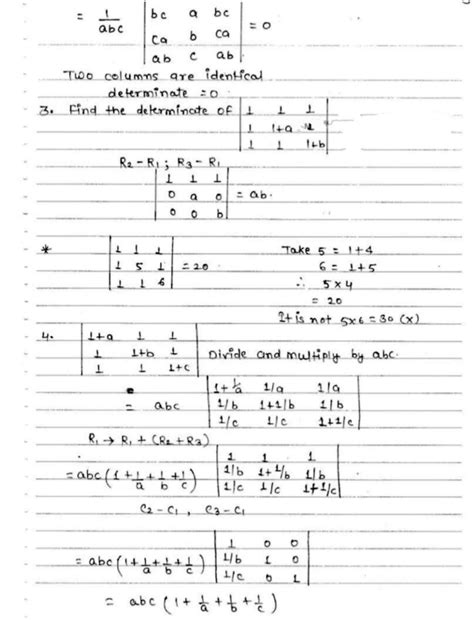 = 1/abc | bc a bc | = 0
| ca b ca |
| ab c ab |
Two columns are identical
determinate = 0
3. Find the determinate of | 1 1 1 |
| 1 1+a 1 |
| 1 1 1+b |
R2 - R1 ; R3 - R1
| 1 1 1 |
| 0 a 0 | = ab.
| 0 0 b |
* | 1 1 1 | Take 5 = 1+4
| 1 5 1 | = 20 6 = 1+5
| 1 1 6 | ∴ 5×4
= 20
It is not 5×6 = 30 (×)
4. | 1+a 1 1 |
| 1 1+b 1 | Divide and multiply by abc.
| 1 1 1+c |
= abc | 1+1/a 1/a 1/a |
| 1/b 1+1/b 1/b |
| 1/c 1/c 1+1/c |
R1 → R1 + (R2 + R3)
= abc (1 + 1/a + 1/b + 1/c) | 1 1 1 |
| 1/b 1+1/b 1/b |
| 1/c 1/c 1+1/c |
C2 - C1 , C3 - C1
= abc (1 + 1/a + 1/b + 1/c) | 1 0 0 |
| 1/b 1 0 |
| 1/c 0 1 |
= abc (1 + 1/a + 1/b + 1/c)